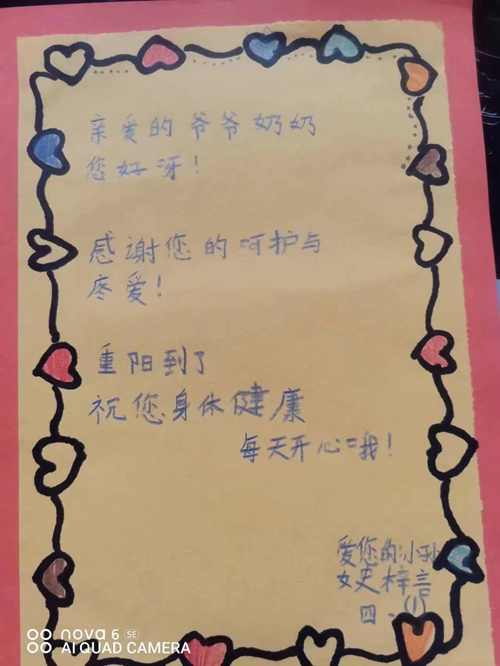 亲爱的爷爷奶奶
您好呀！
感谢您的呵护与
疼爱！
重阳到了
祝您身体健康
每天开心哦！
爱您的小孙
梓言
四.(1)
nova 6 SE
AI QUAD CAMERA